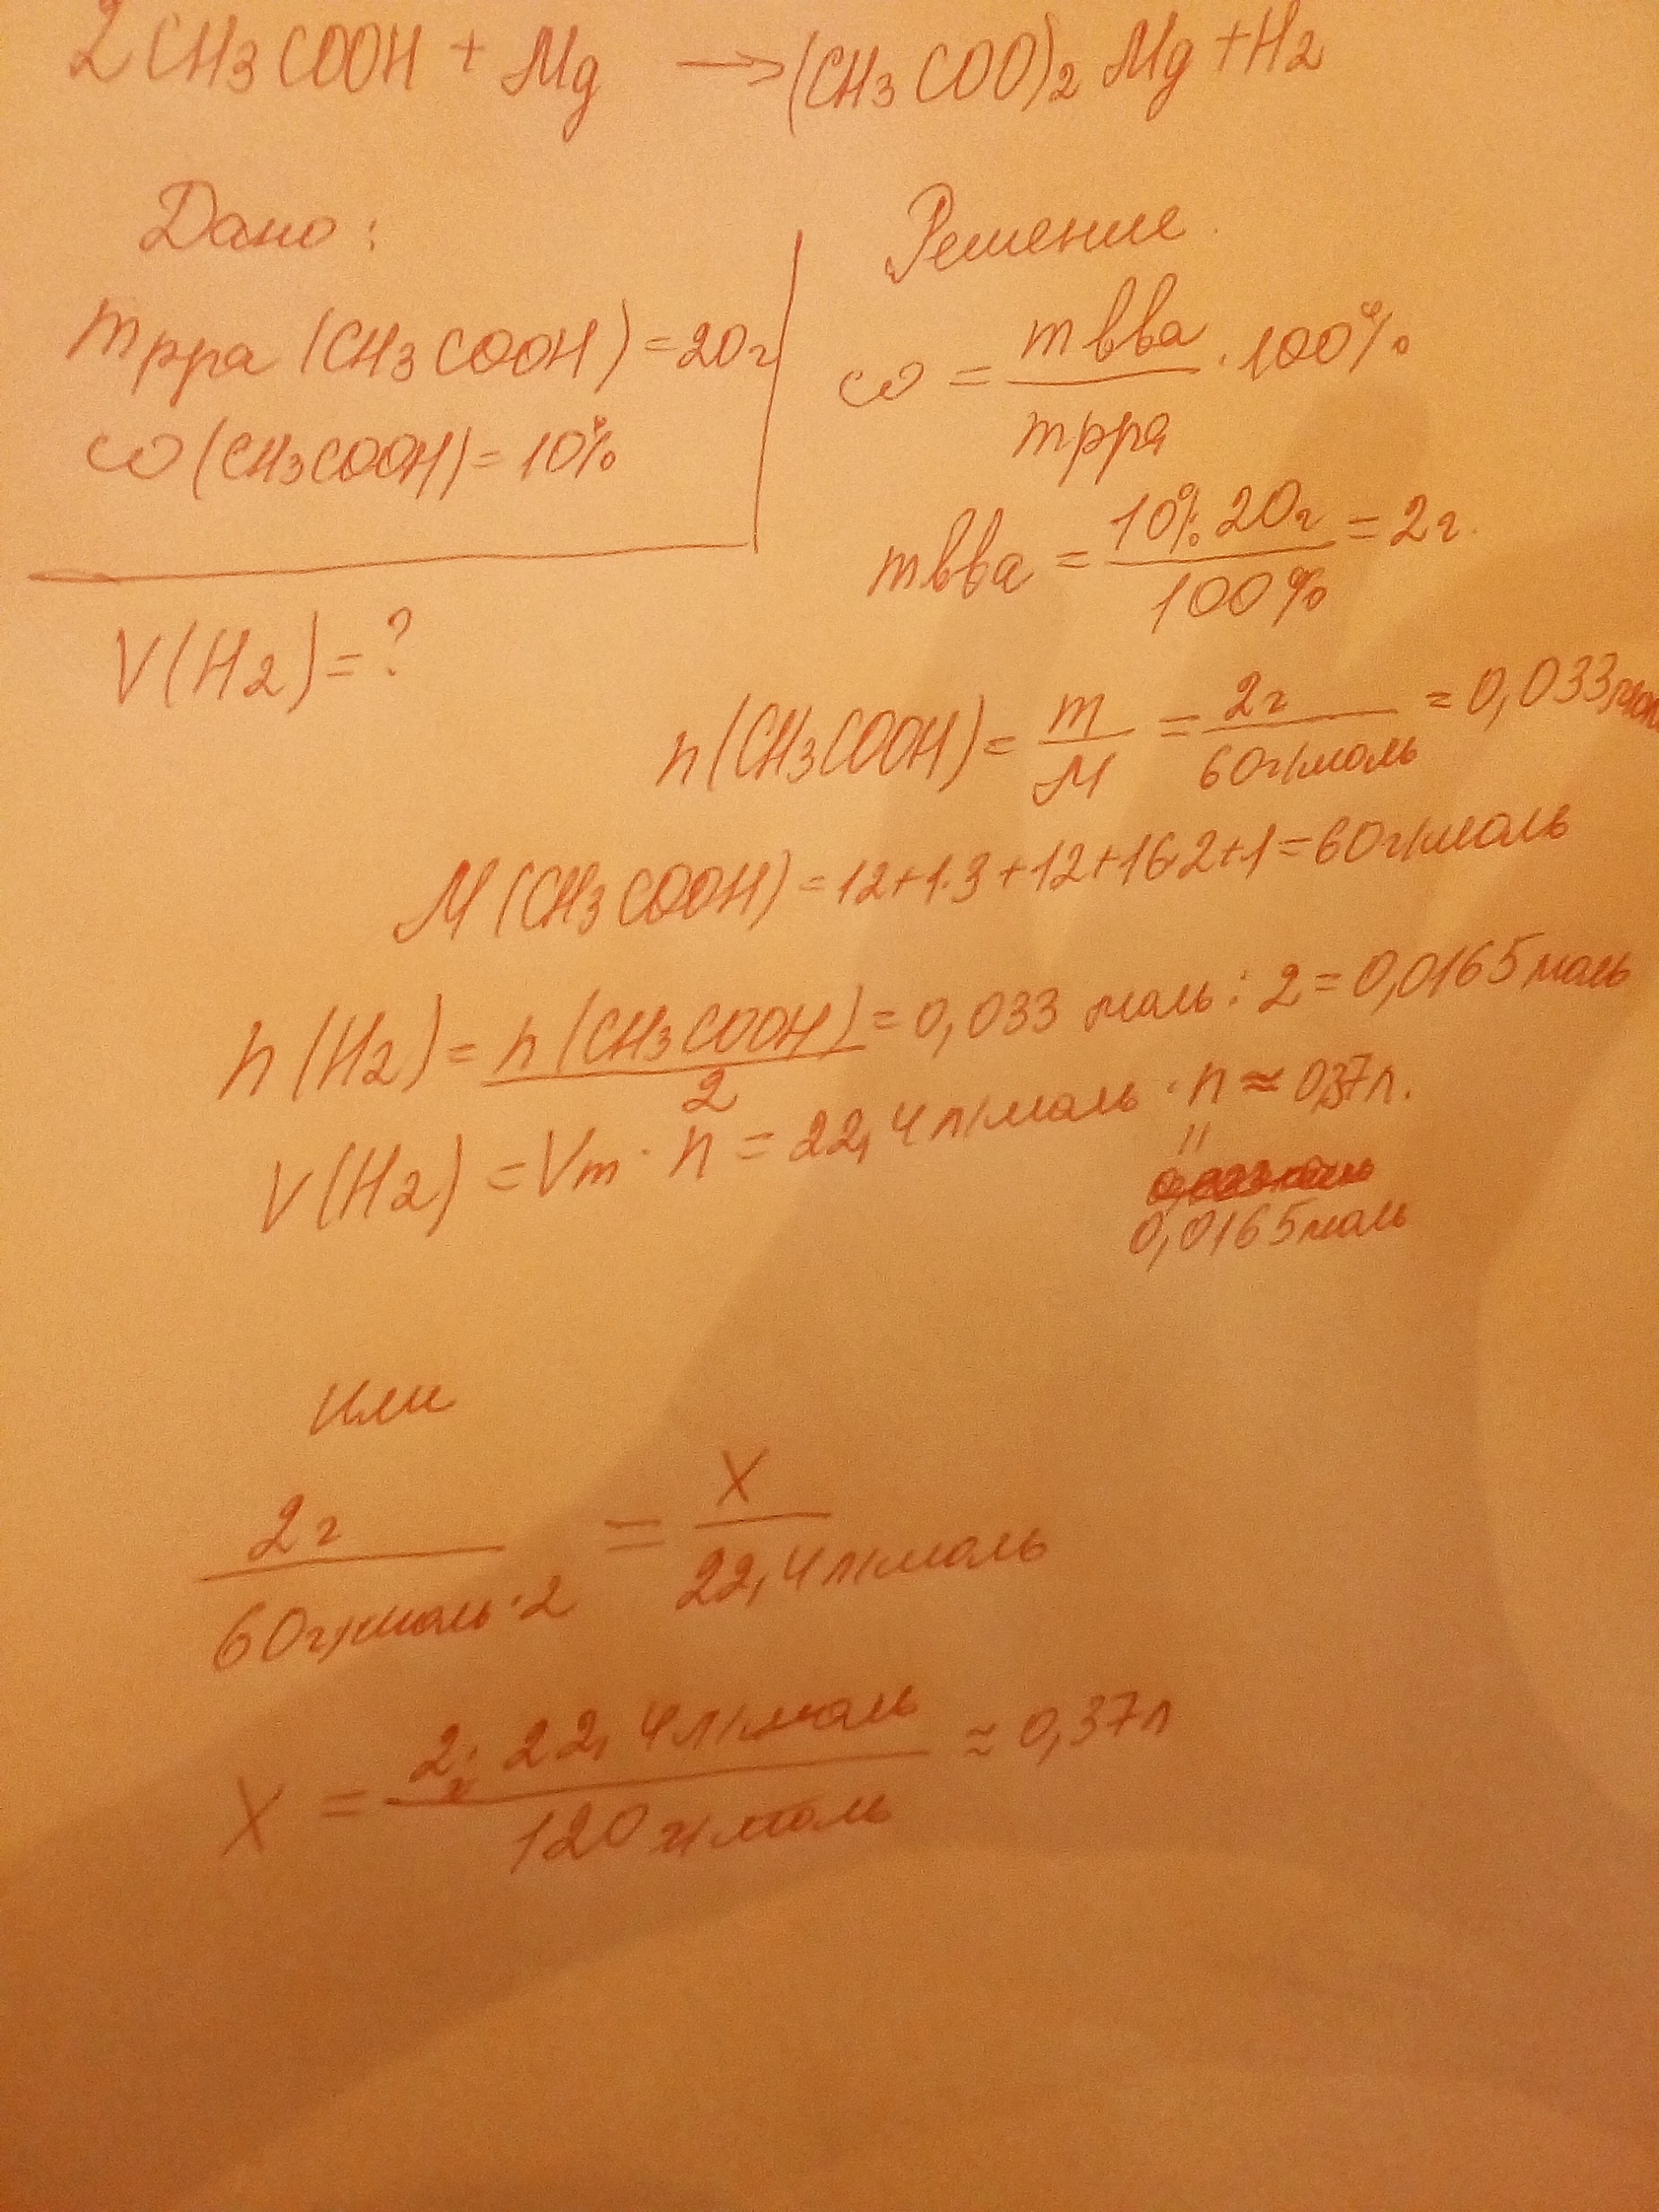 2CH3COOH + Mg → (CH3COO)2Mg + H2
Дано:
mрра (CH3COOH) = 20г
ω (CH3COOH) = 10%
V(H2) = ?
Решение.
ω = mвва / mрра · 100%
mвва = 10% · 20г / 100% = 2г.
n(CH3COOH) = m / M = 2г / 60г/моль = 0,033моль
M(CH3COOH) = 12+1·3+12+16·2+1=60г/моль
n(H2) = n(CH3COOH) / 2 = 0,033 моль : 2 = 0,0165 моль
V(H2) = Vm · n = 22,4л/моль · n ≈ 0,37л.
"
0,0165моль
или
2г / 60г/моль·2 = X / 22,4л/моль
X = 2г · 22,4л/моль / 120г/моль ≈ 0,37л